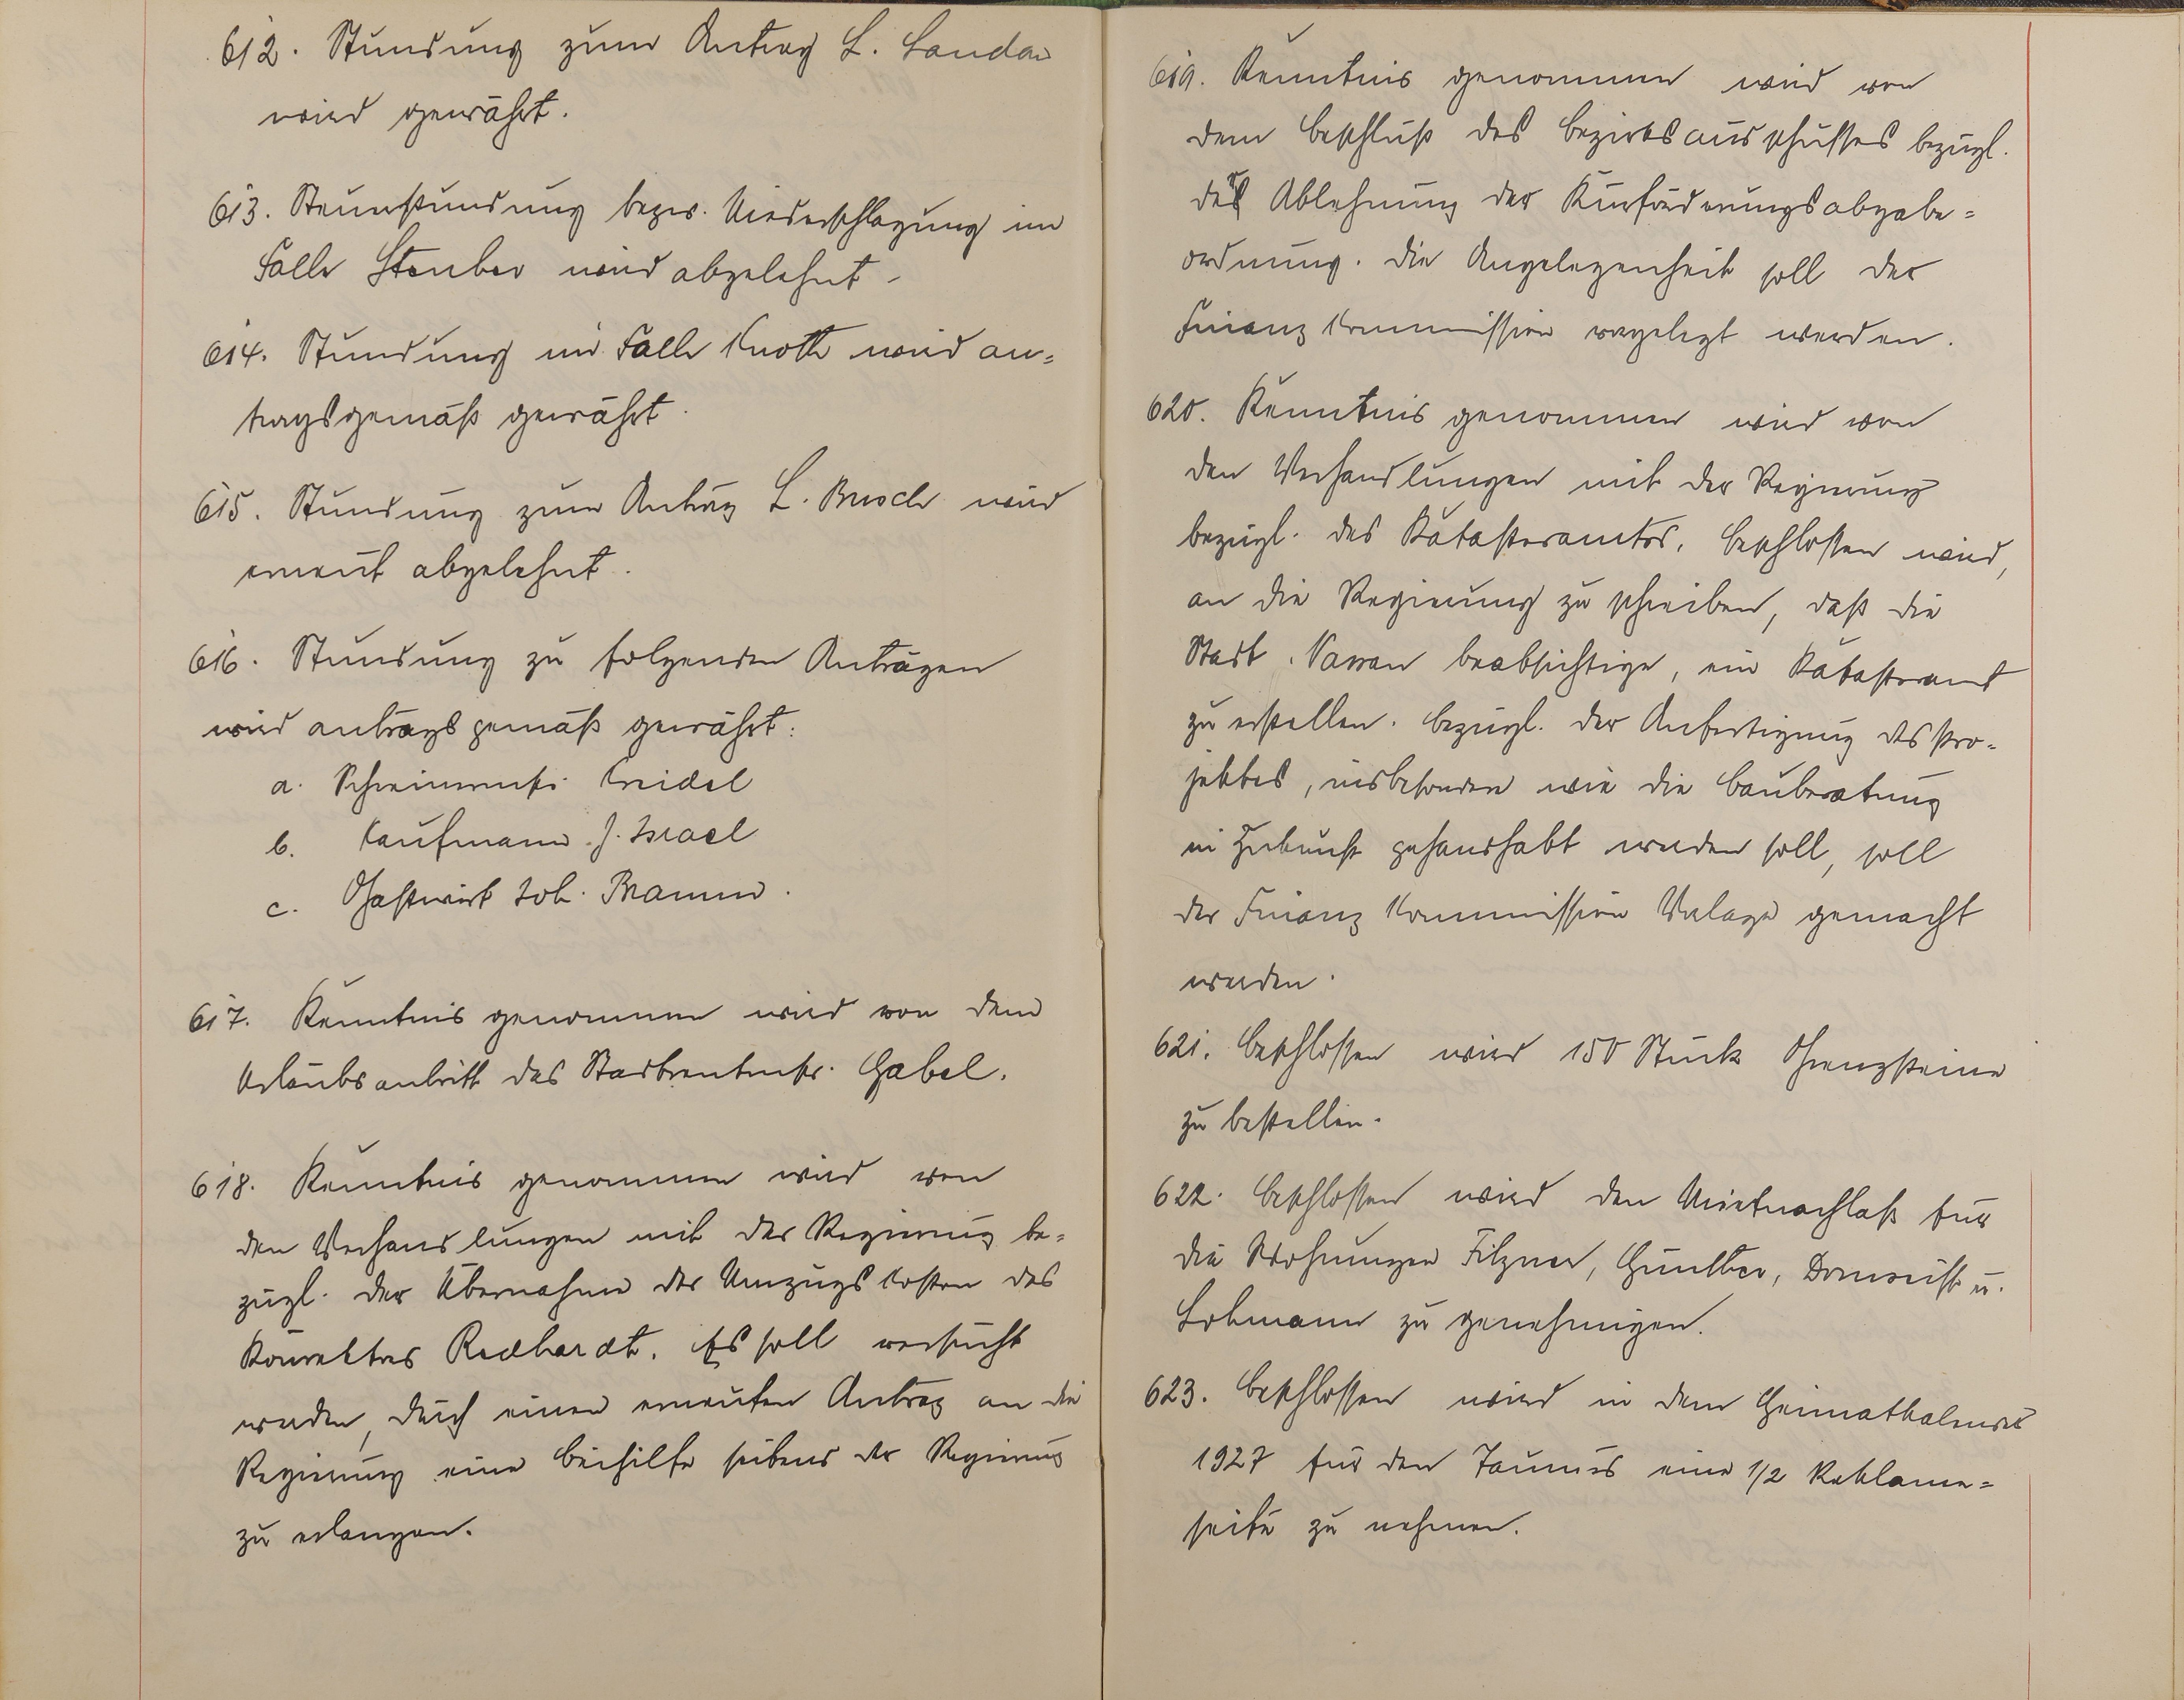 612. Stundung zum Antrag L. Landau
wird gewährt.
613. Steuerstundung bezw. Niederschlagung im
Falle Stenber wird abgelehnt.
614. Stundung im Falle Knoth wird an-
tragsgemäß gewährt.
615. Stundung zum Antrag L. Busch wird
erneut abgelehnt.
616. Stundung zu folgenden Anträgen
wird antragsgemäß gewährt:
a. Schreinermstr. Creidel
b. Kaufmann J. Israel
c. Gastwirt Joh. Bramm.
617. Kenntnis genommen wird von dem
Urlaubsantritt des Stadtrentmstr. Gabel.
618. Kenntnis genommen wird von
den Verhandlungen mit der Regierung be-
zügl. der Übernahme der Umzugskosten des
Konrektors Redhardt. Es soll versucht
werden, durch einen erneuten Antrag an die
Regierung eine Beihilfe seitens der Regierung
zu erlangen.
619. Kenntnis genommen wird von
dem Beschluß des Bezirksausschusses bezügl.
der Ablehnung der Kurförderungsabgabe-
ordnung. Die Angelegenheit soll der
Finanzkommission vorgelegt werden.
620. Kenntnis genommen wird von
den Verhandlungen mit der Regierung
bezügl. des Katasteramtes. Beschlossen wird,
an die Regierung zu schreiben, daß die
Stadt Nassau beabsichtige, ein Katasteramt
zu erstellen. Bezügl. der Anfertigung des Pro-
jektes, insbesondere wie die Bauberatung
in Zukunft gehandhabt werden soll, soll
der Finanzkommission Vorlage gemacht
werden.
621. Beschlossen wird 150 Stück Grenzsteine
zu bestellen.
622. Beschlossen wird den Mietnachlaß für
die Wohnungen Filzner, Günther, Dornseift u.
Lohmann zu genehmigen.
623. Beschlossen wird in dem Heimatkalender
1927 für den Taunus eine 1/2 Reklame-
seite zu nehmen.